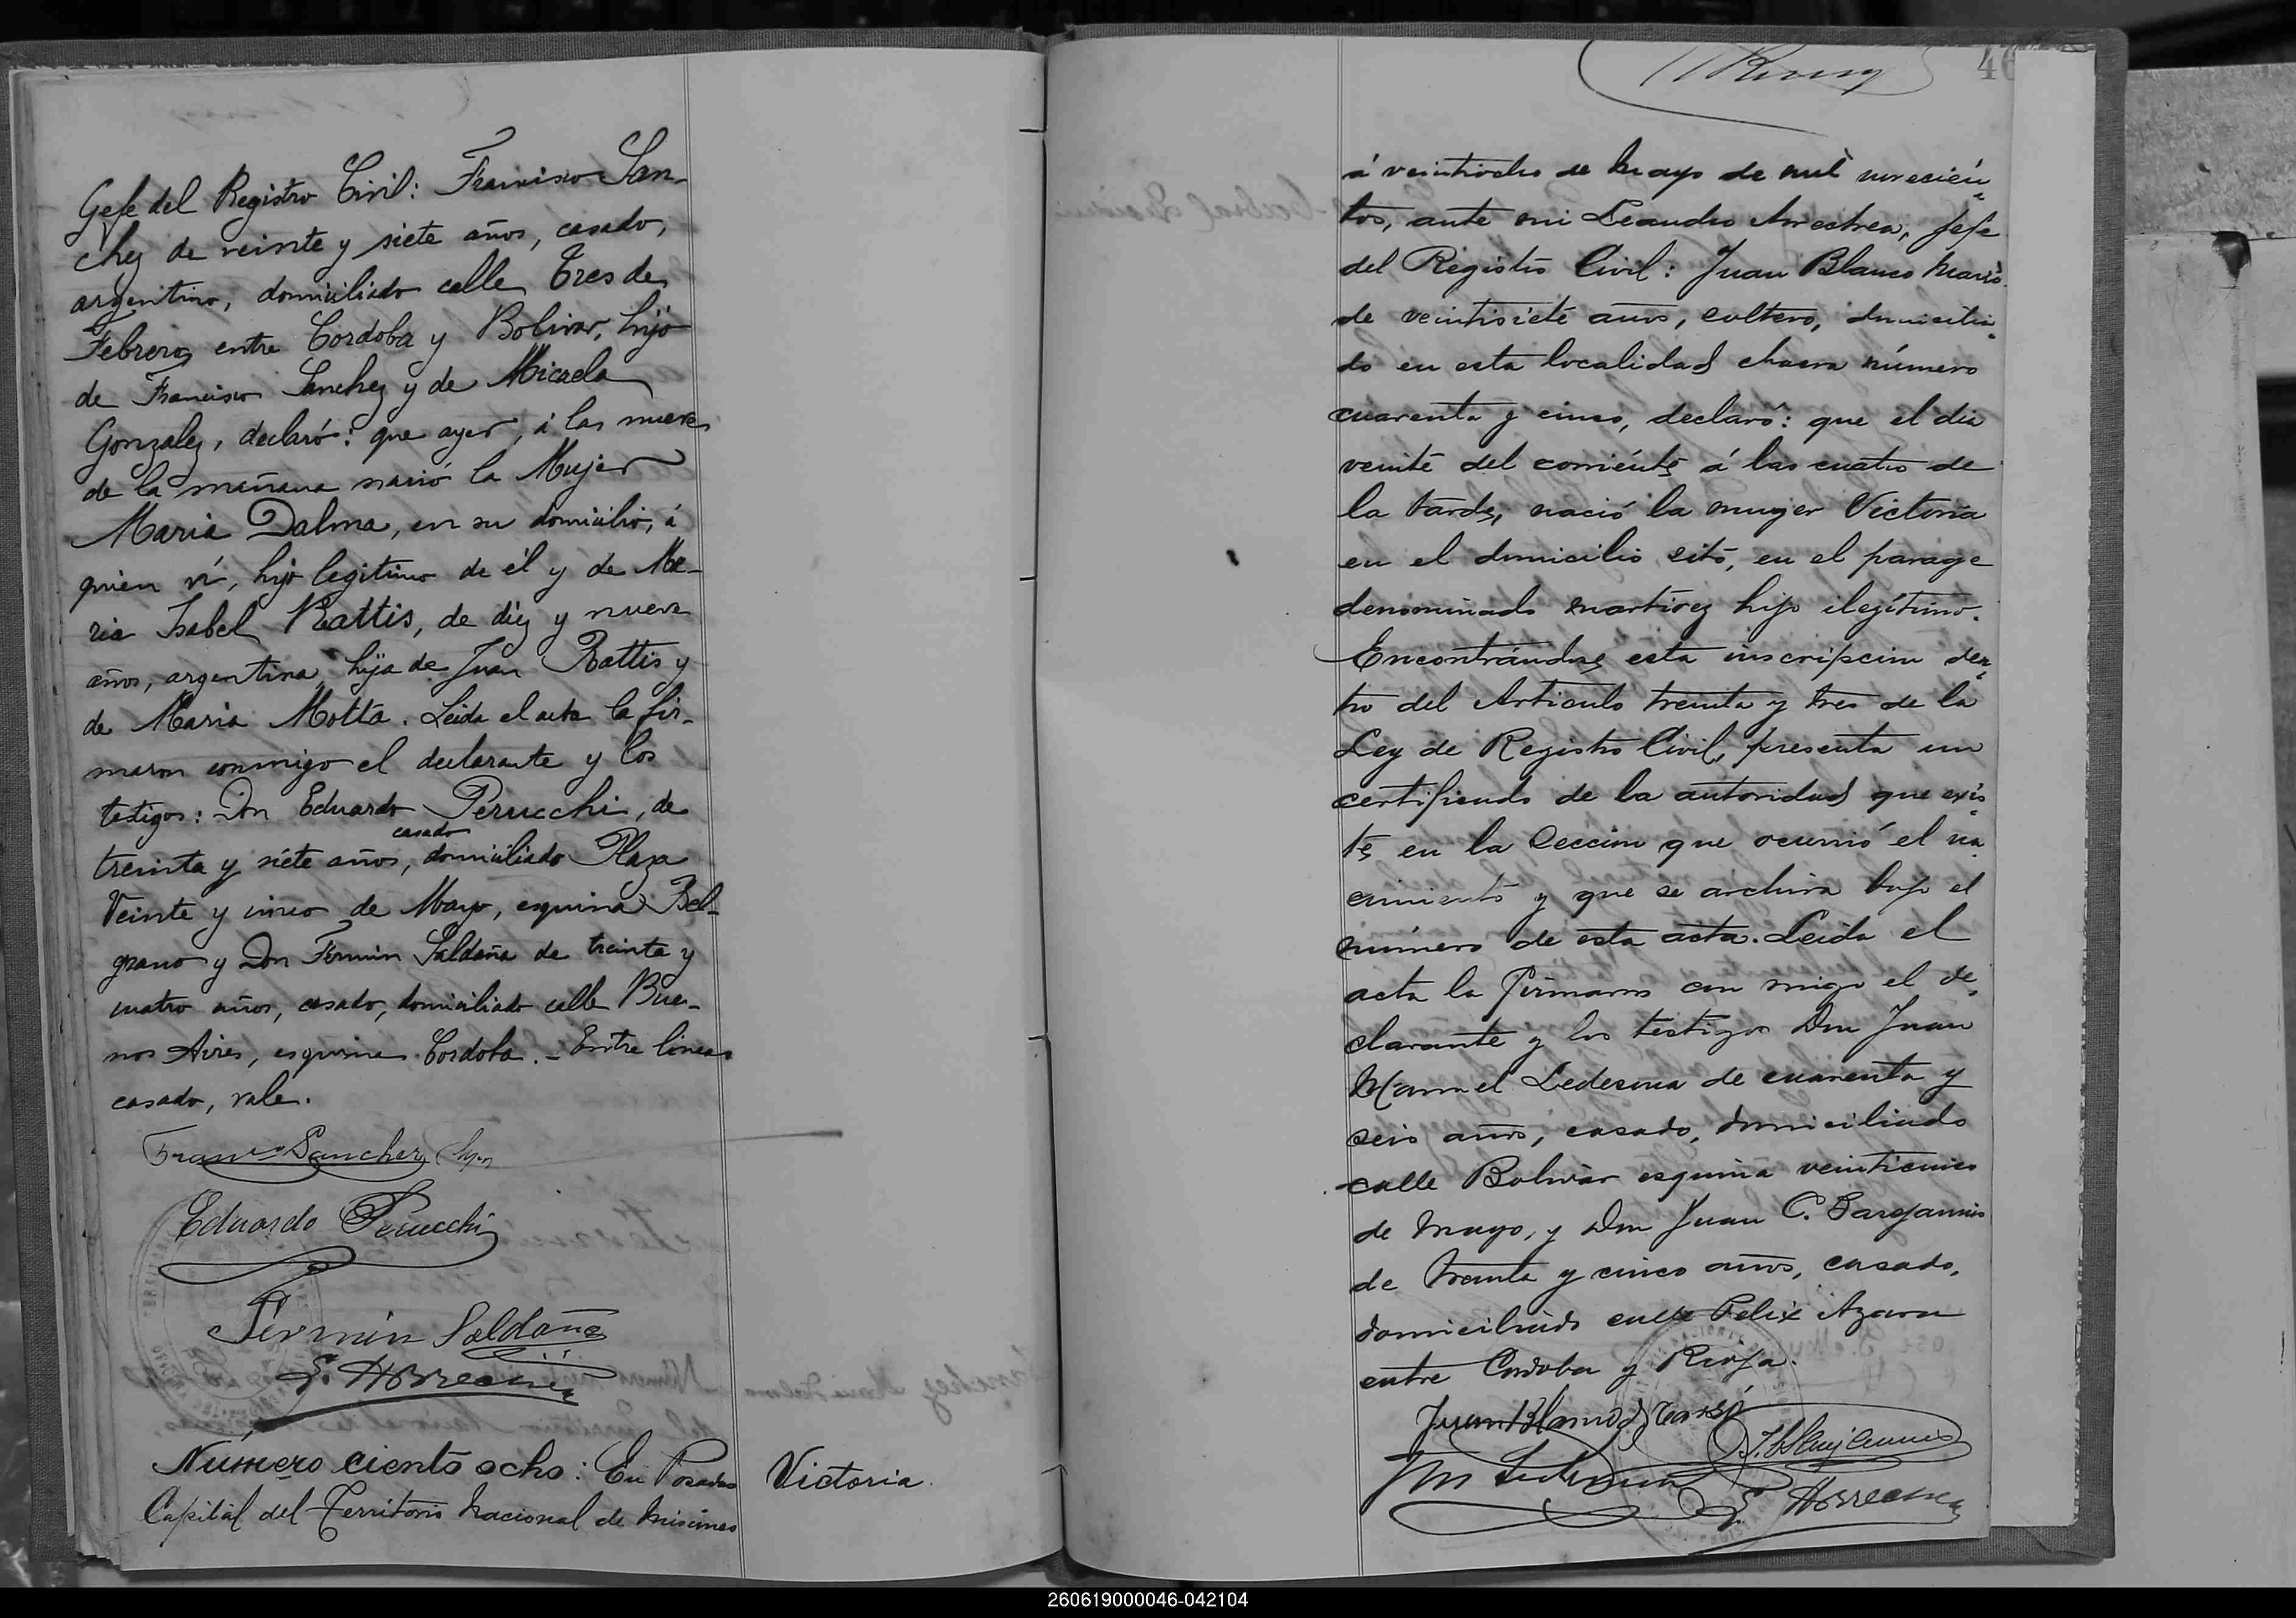 Gefe del Registro Civil: Francisco San-
chez de veinte y siete años, casado,
argentino, domiciliado calle Tres de
Febrero, entre Cordoba y Bolivar, hijo
de Francisco Sanchez y de Micaela
Gonzalez, declaró: que ayer, á las nueve
de la mañana nació la Mujer
Maria Dalma, en su domicilio, á
quien ví, hijo legitimo de él y de Ma-
ria Isabel Rattis, de diez y nueve
años, argentina, hija de Juan Rattis y
de Maria Motta. Leida el acta la fir-
maron conmigo el declarante y los
testigos: Don Eduardo Perucchi, de
casado
treinta y siete años, domiciliado Plaza
Veinte y cinco de Mayo, esquina Bel-
grano y Don Fermin Saldaña de treinta y
cuatro años, casado, domiciliado calle Bue-
nos Aires, esquina Cordoba. - Entre lineas
casado, vale.
Franco Sanchez hijo
Eduardo Perucchi
Fermin Saldaña
L. Arrechea
Número ciento ocho: En Posadas
Capital del Territorio Nacional de Misiones
Victoria
46
á veintiocho de Mayo de mil novecién-
tos, ante mi Leandro Arrechea, Jefe
del Registro Civil: Juan Blanco
de veintisiete años, soltero, domicilia-
do en esta localidad chacra número
cuarenta y cinco, declaró: que el dia
veinte del corriénte á las cuatro de
la tarde, nació la mujer Victoria
en el domicilio sito, en el parage
denominado Martirez hijo ilegítimo.
Encontrándose esta inscripcion den-
tro del Articulo treinta y tres de la
Ley de Registro Civil, presenta un
certificado de la autoridad que exis-
te en la Seccion que ocurrió el na-
cimiento y que se archiva bajo el
número de esta acta. Leida el
acta la firmaron con migo el de-
clarante y los testigos Don Juan
Manuel Ledesma de cuarenta y
seis años, casado, domiciliado
calle Bolivar esquina veinticinco
de Mayo, y Don Juan C.
de treinta y cinco años, casado,
domiciliado calle Felix Azara
entre Cordoba y Rioja.
Juan Blanco
J M Ledesma
L. Arrechea
260619000046-042104